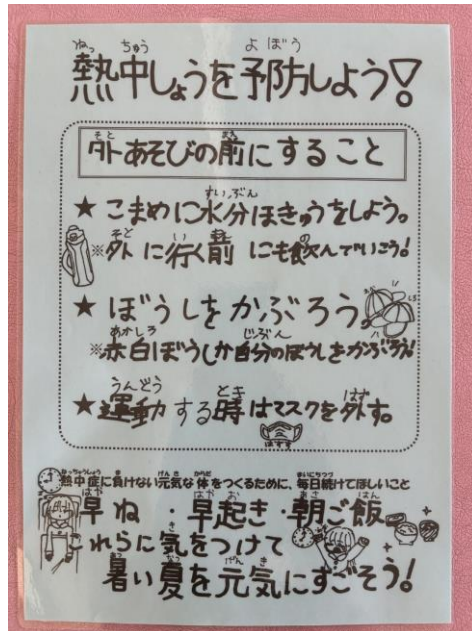 熱中しょうを予防しよう!
外あそびの前にすること
★こまめに水分ほきゅうをしよう。
※外に行く前にも飲んでいこう!
★ぼうしをかぶろう。
※赤白ぼうしか自分のぼうしをかぶろう!
★運動する時はマスクを外す。
はずす
熱中症に負けない元気な体をつくるために、毎日続けてほしいこと
早ね・早起き・朝ご飯
これらに気をつけて
暑い夏を元気にすごそう!